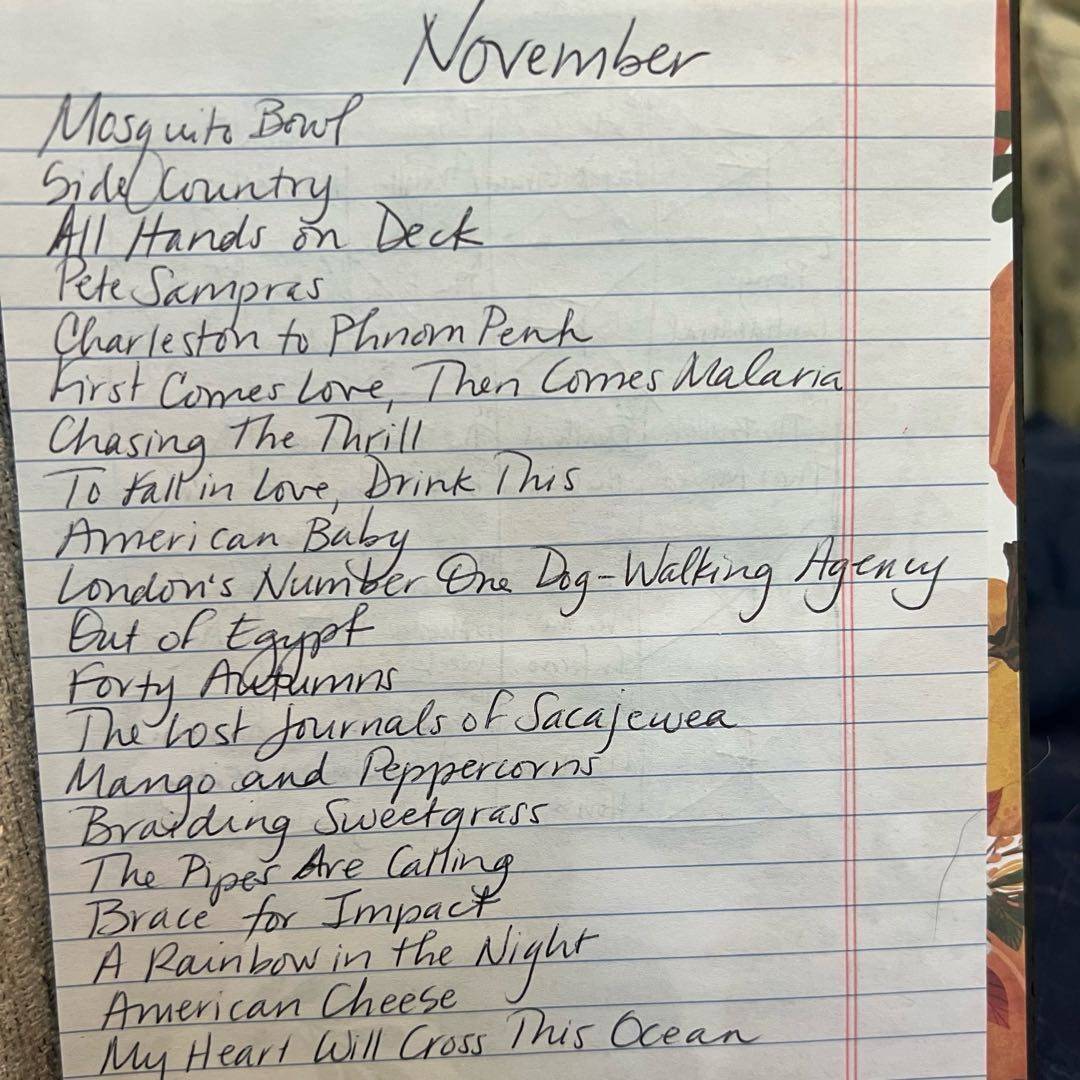 November
Mosquito Bowl
Side Country
All Hands on Deck
Pete Sampras
Charleston to Phnom Penh
First Comes Love, Then Comes Malaria
Chasing The Thrill
To Fall in Love, Drink This
American Baby
London's Number One Dog-Walking Agency
Out of Egypt
Forty Autumns
The Lost Journals of Sacajewea
Mango and Peppercorns
Braiding Sweetgrass
The Pipes Are Calling
Brace for Impact
A Rainbow in the Night
American Cheese
My Heart Will Cross This Ocean